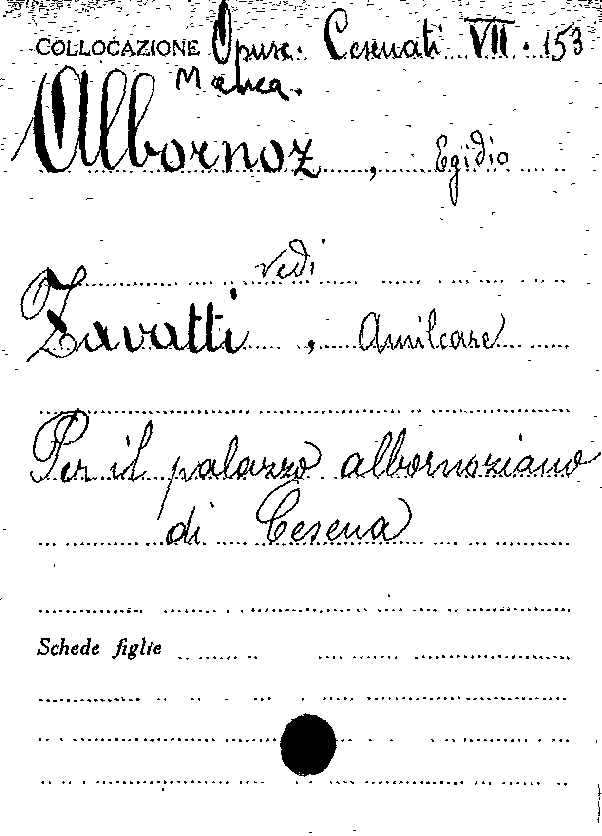 COLLOCAZIONE Opusc. Cesenati VII. 153
Manca.
Albornoz, Egidio
vedi
Zavatti, Amilcare
Per il palazzo albornoziano
di Cesena
Schede figlie